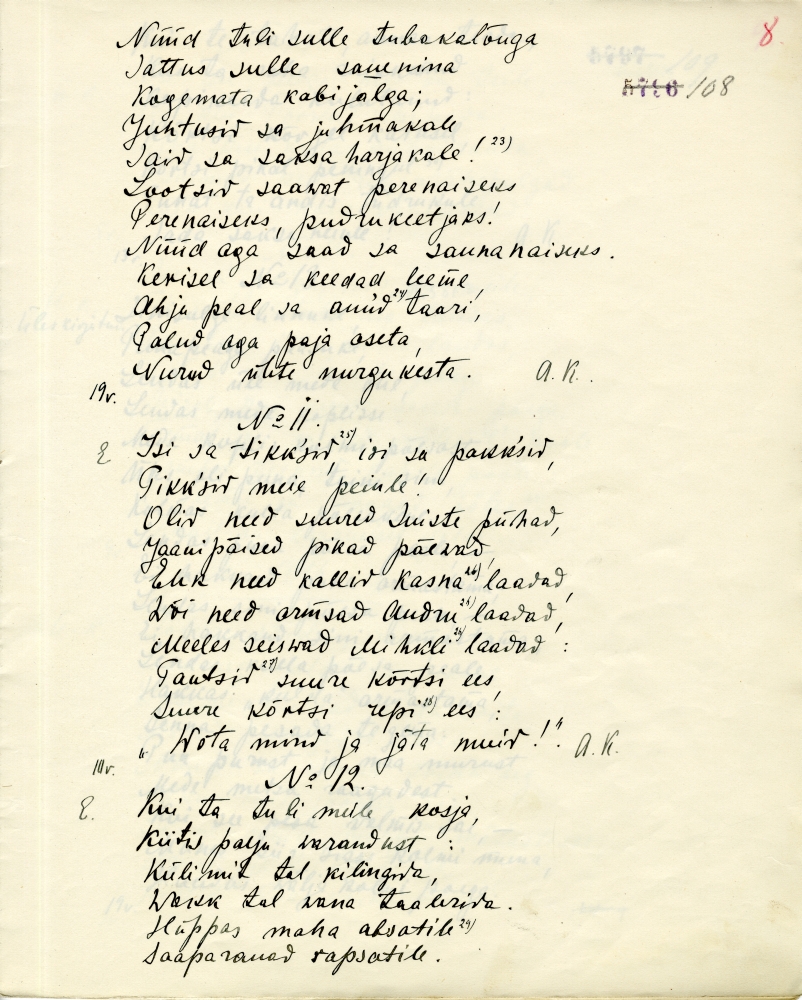 8.
5796 /08
Nüüd tuli sulle tubakalõuga
Sattus sulle sauenina
Kogemata kabijalga;
Juhtusid sa juhm̄akale
Said sa saksa harjakale! 23)
Lootsid saawat perenaiseks
Perenaiseks, pudrukeetjaks!
Nüüd aga saad sa saunanaiseks.
Kerisel sa keedad leeme,
Ahju peal sa auud 24) taari,
Palud aga paja aseta,
Nurud ühte nurgukesta. A. K.
19v.
No 11.
E Isi sa tikk'sid, 25) isi sa pakk'sid,
Tikk'sid meie peiule!
Olid need suured Suiste pühad,
Jaanipäised pikad päewad,
Ehk need kallid Kasna 26) laadad,
Wõi need armsad Andru 26) laadad,
Meeles seiswad Mihkli 26) laadad:
Tantsid 27) suure kõrtsi ees,
Suure kõrtsi repi 28) ees:
"Wota mind ja jäta muid!" A. K.
10v.
No 12.
E. Kui ta tuli meile kosja,
Kiitis palju warandust:
Külimit tal kilingida,
Wakk tal wana taalerida.
Hüppas maha absatile 29)
Saaparauad rapsatile.